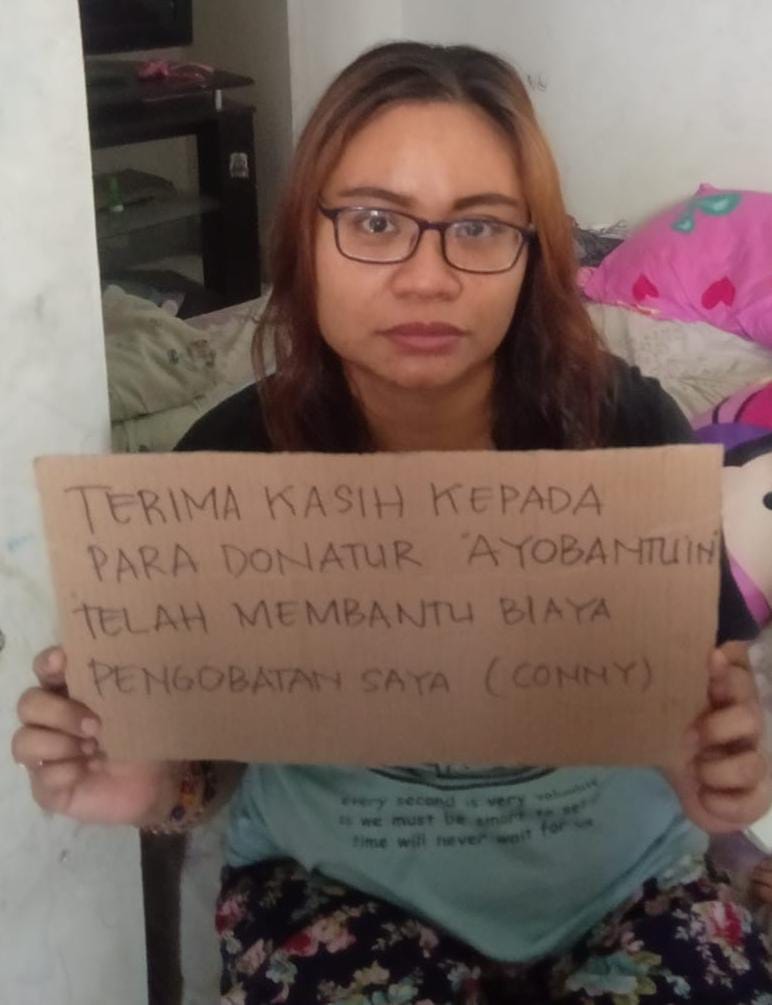 TERIMA KASIH KEPADA
PARA DONATUR "AYOBANTUIN"
TELAH MEMBANTU BIAYA
PENGOBATAN SAYA (CONNY)
every second is very
is we must be smart to
time will never wait for us